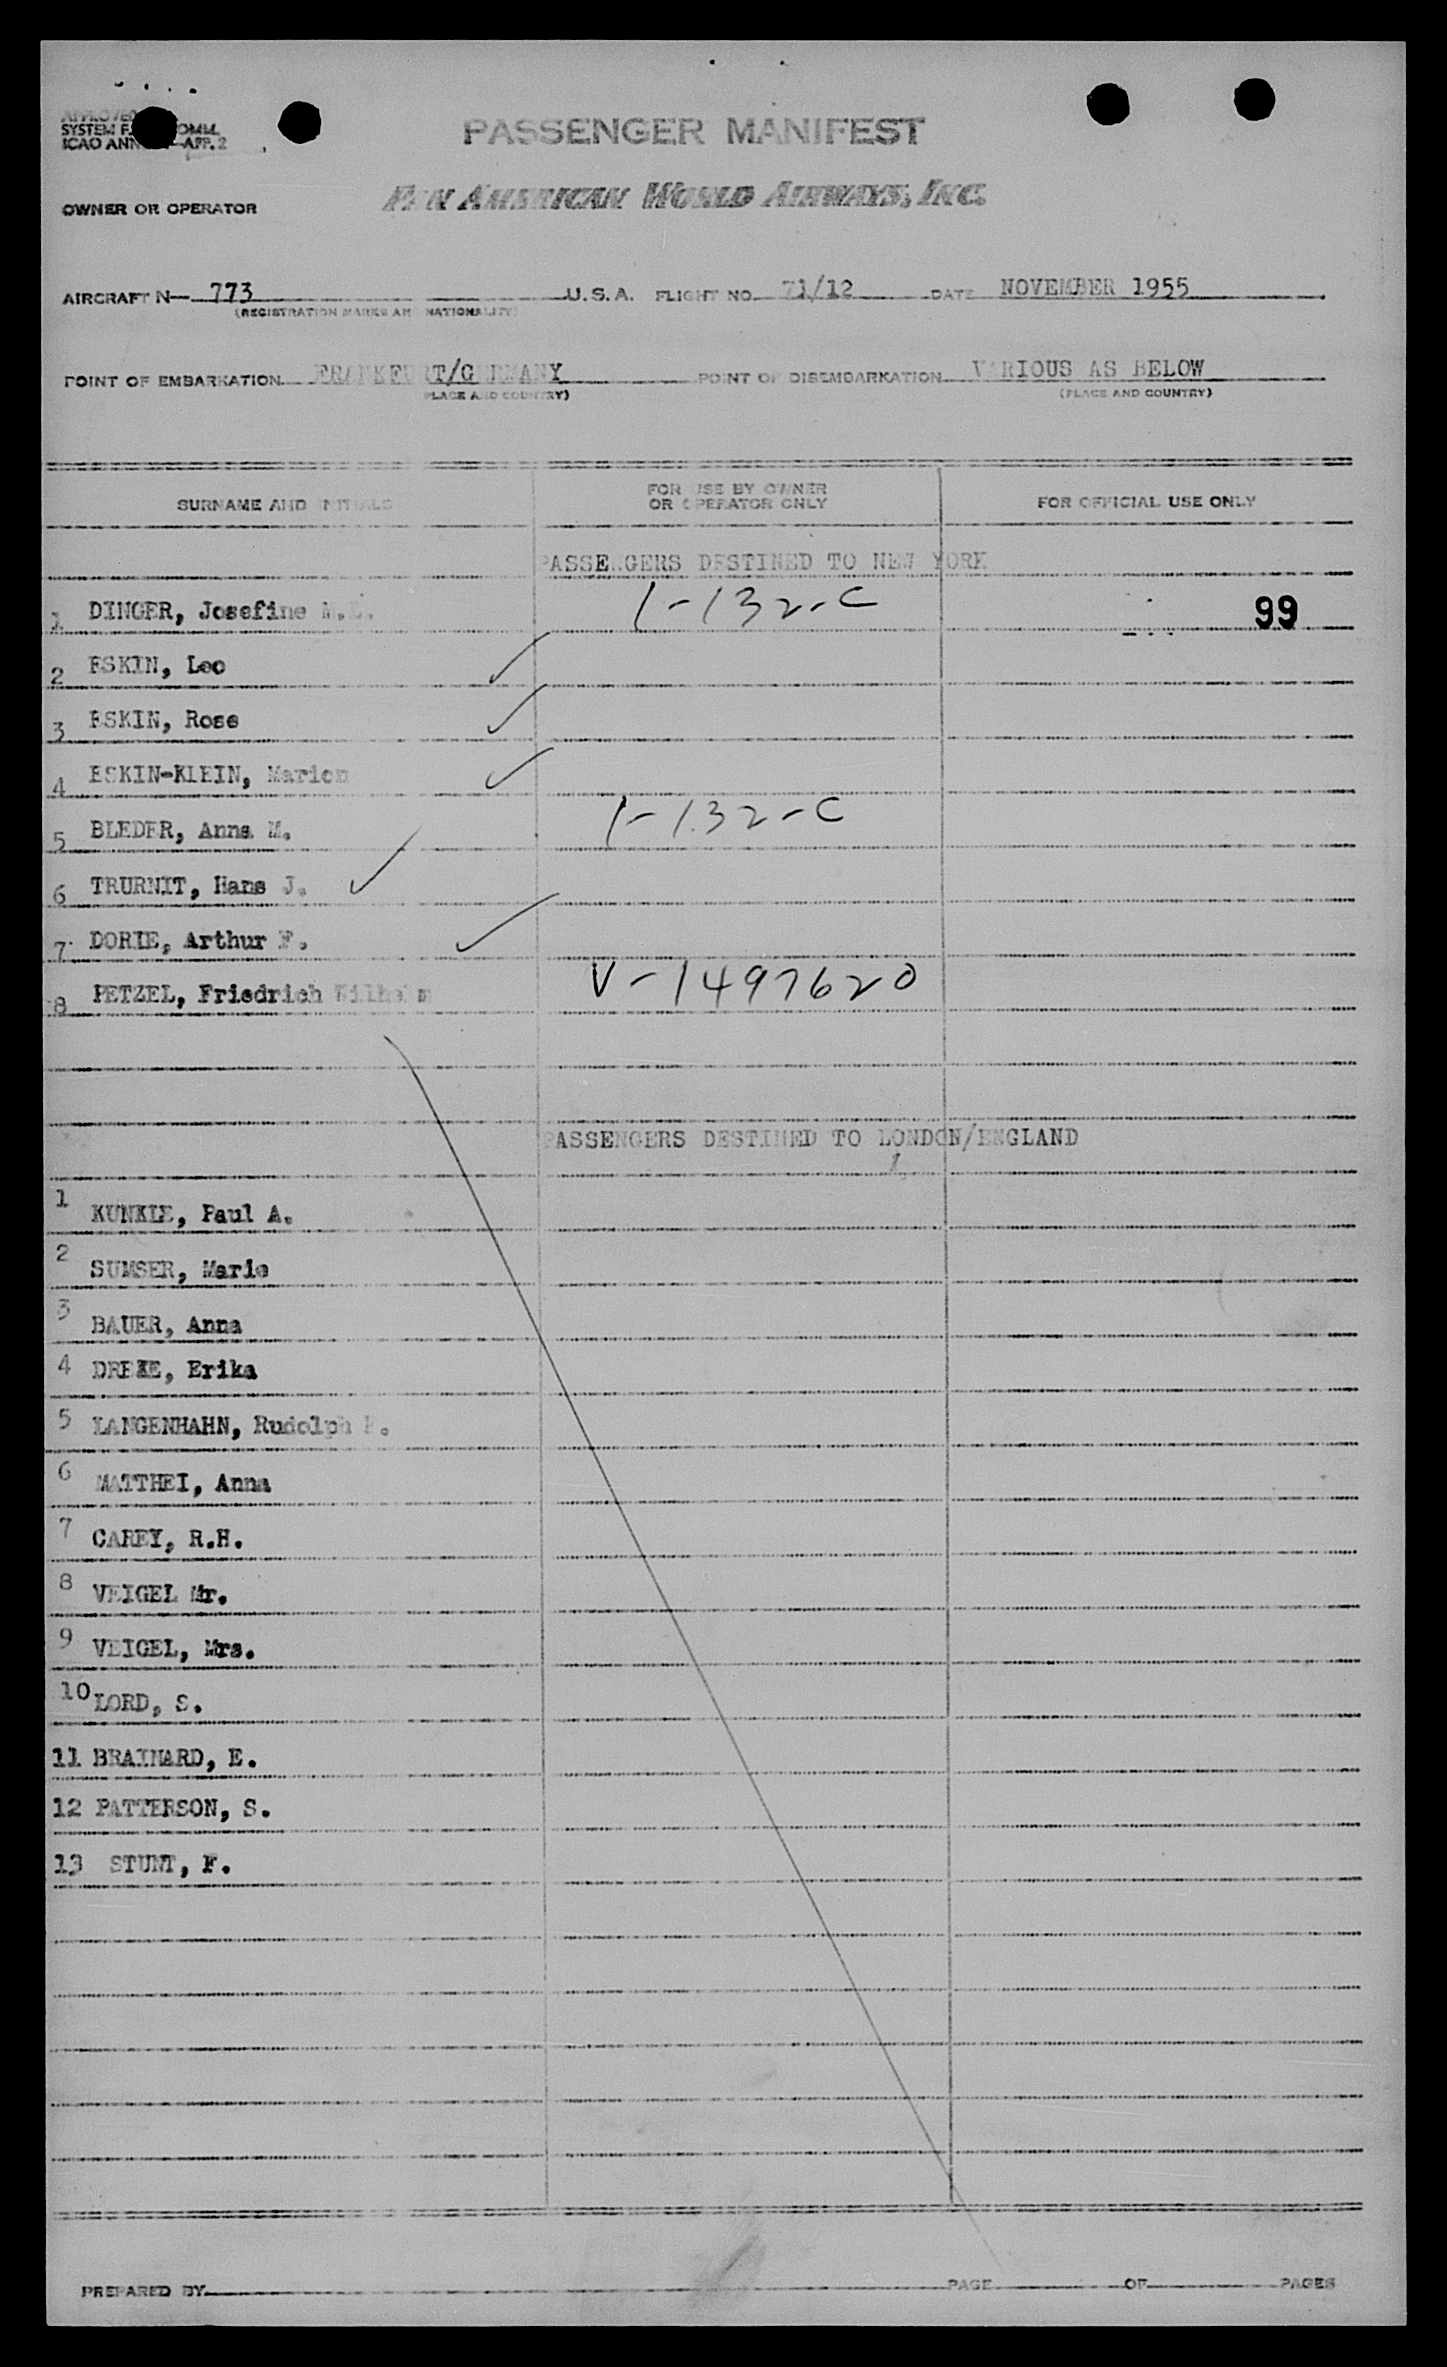 APPROVED
SYSTEM F. COMM.
ICAO ANN APP. 2
PASSENGER MANIFEST
OWNER OR OPERATOR PAN AMERICAN WORLD AIRWAYS, INC.
AIRCRAFT N— 773 U.S.A. FLIGHT NO. 71/12 DATE NOVEMBER 1955
(REGISTRATION MARKS AND NATIONALITY)
POINT OF EMBARKATION FRANKFURT/GERMANY POINT OF DISEMBARKATION VARIOUS AS BELOW
(PLACE AND COUNTRY) (PLACE AND COUNTRY)
SURNAME AND INITIALS FOR USE BY OWNER OR OPERATOR ONLY FOR OFFICIAL USE ONLY
PASSENGERS DESTINED TO NEW YORK
1 DINGER, Josefine 1-132-C 99
2 ESKIN, Leo ✓
3 ESKIN, Rose ✓
4 ESKIN-KLEIN, Marion ✓
5 BLEDER, Anna M. 1-132-C
6 TRURNIT, Hans J. ✓
7. DORIE, Arthur F. ✓
8 PETZEL, Friedrich Wilhelm V-1497620
PASSENGERS DESTINED TO LONDON/ENGLAND
1 KUNKLE, Paul A.
2 SUMSER, Marie
3 BAUER, Anna
4 Erika
5 LANGENHAHN, Rudolph
6 MATTHEI, Anna
7 CAREY, R.H.
8 VEIGEL Mr.
9 VEIGEL, Mrs.
10 LORD, S.
11 BRAINARD, E.
12 PATTERSON, S.
13 STUNT, F.
PREPARED BY PAGE OF PAGES